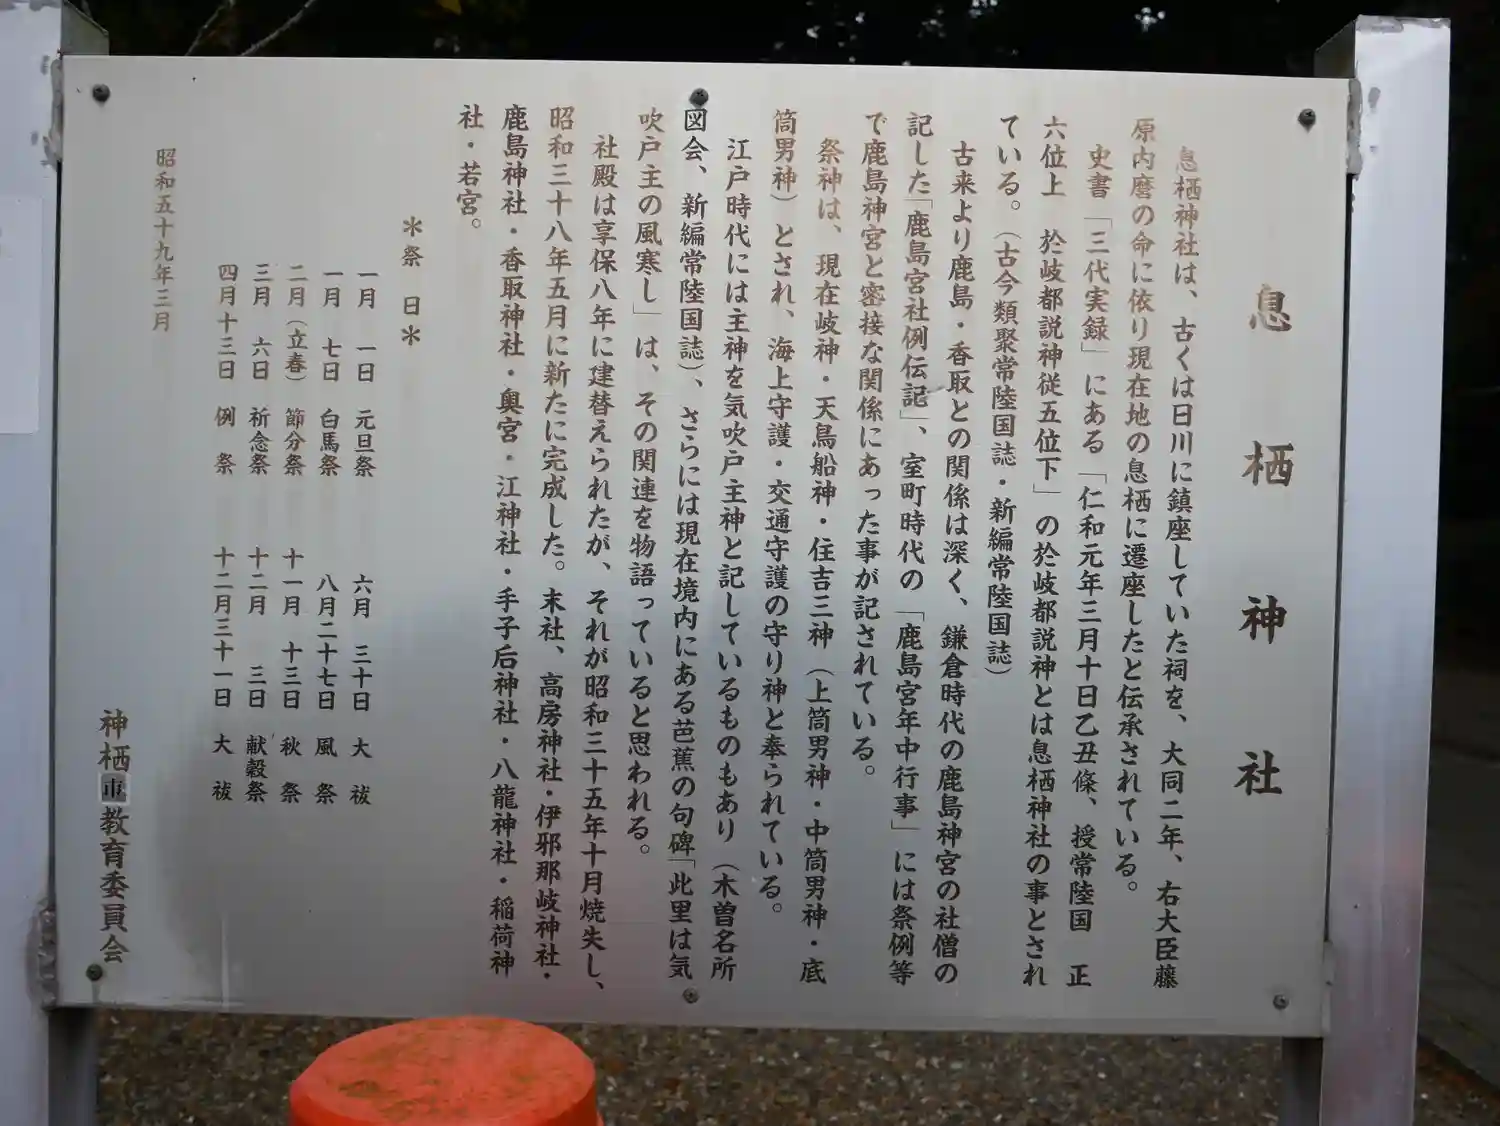 息栖神社
息栖神社は、古くは日川に鎮座していた祠を、大同二年、右大臣藤
原内麿の命に依り現在地の息栖に遷座したと伝承されている。
史書「三代実録」にある「仁和元年三月十日乙丑條、授常陸国　正
六位上　於岐都説神従五位下」の於岐都説神とは息栖神社の事とされ
ている。（古今類聚常陸国誌・新編常陸国誌）
古来より鹿島・香取との関係は深く、鎌倉時代の鹿島神宮の社僧の
記した「鹿島宮社例伝記」、室町時代の「鹿島宮年中行事」には祭例等
で鹿島神宮と密接な関係にあった事が記されている。
祭神は、現在岐神・天鳥船神・住吉三神（上筒男神・中筒男神・底
筒男神）とされ、海上守護・交通守護の守り神と奉られている。
江戸時代には主神を気吹戸主神と記しているものもあり（木曽名所
図会、新編常陸国誌）、さらには現在境内にある芭蕉の句碑「此里は気
吹戸主の風寒し」は、その関連を物語っていると思われる。
社殿は享保八年に建替えられたが、それが昭和三十五年十月焼失し、
昭和三十八年五月に新たに完成した。末社、高房神社・伊邪那岐神社・
鹿島神社・香取神社・奥宮・江神社・手子后神社・八龍神社・稲荷神
社・若宮。
＊祭　日＊
一月　一日　元旦祭　六月　三十日　大　祓
一月　七日　白馬祭　八月二十七日　風　祭
二月（立春）節分祭　十一月　十三日　秋　祭
三月　六日　祈念祭　十二月　三日　献穀祭
四月十三日　例　祭　十二月三十一日　大　祓
昭和五十九年三月
神栖市教育委員会